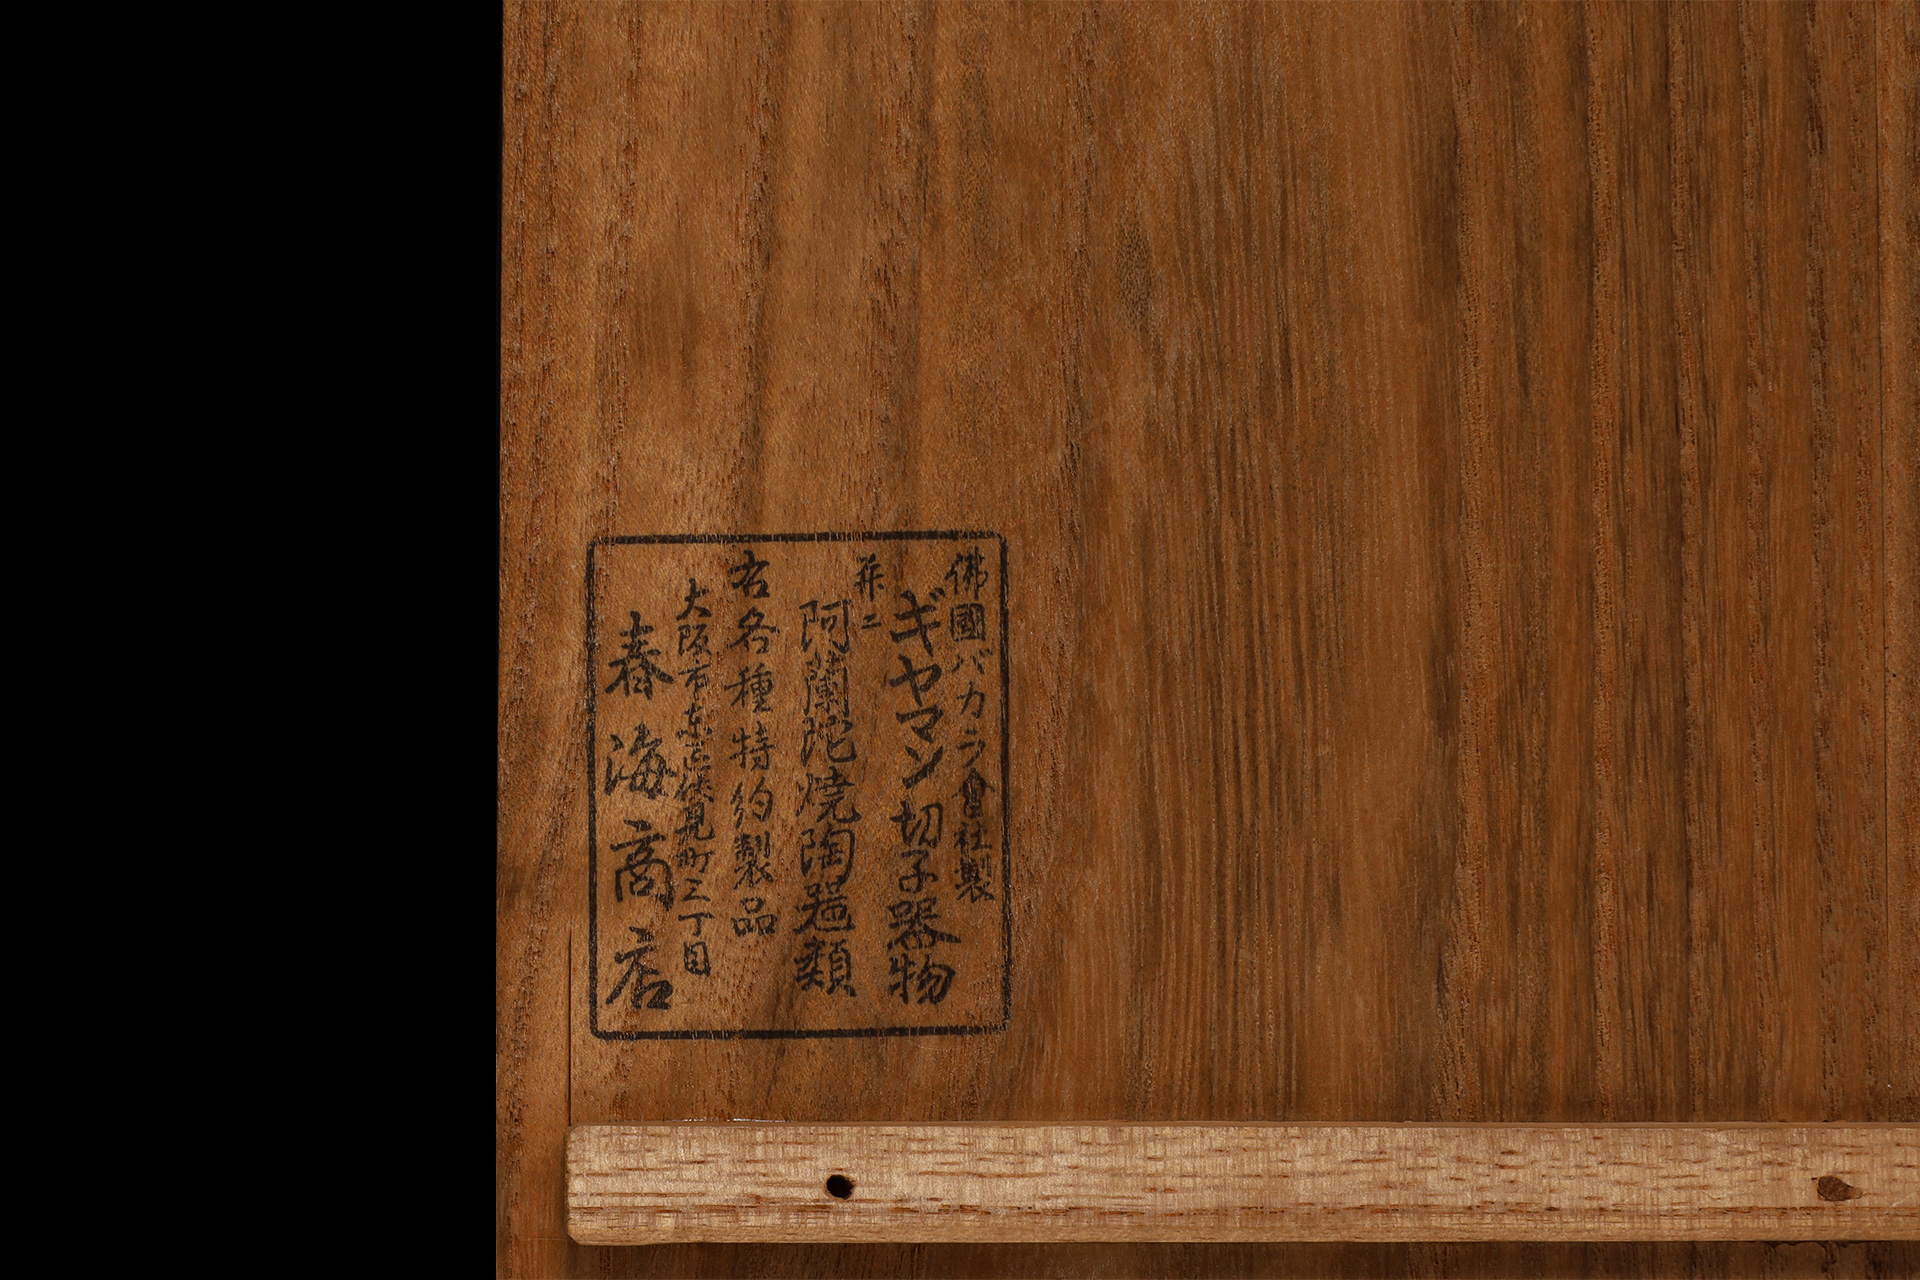 佛國バカラ會社製
ギヤマン切子器物
并ニ
阿蘭陀燒陶器類
右各種特約製品
大阪市東區伏見町三丁目
春海商店